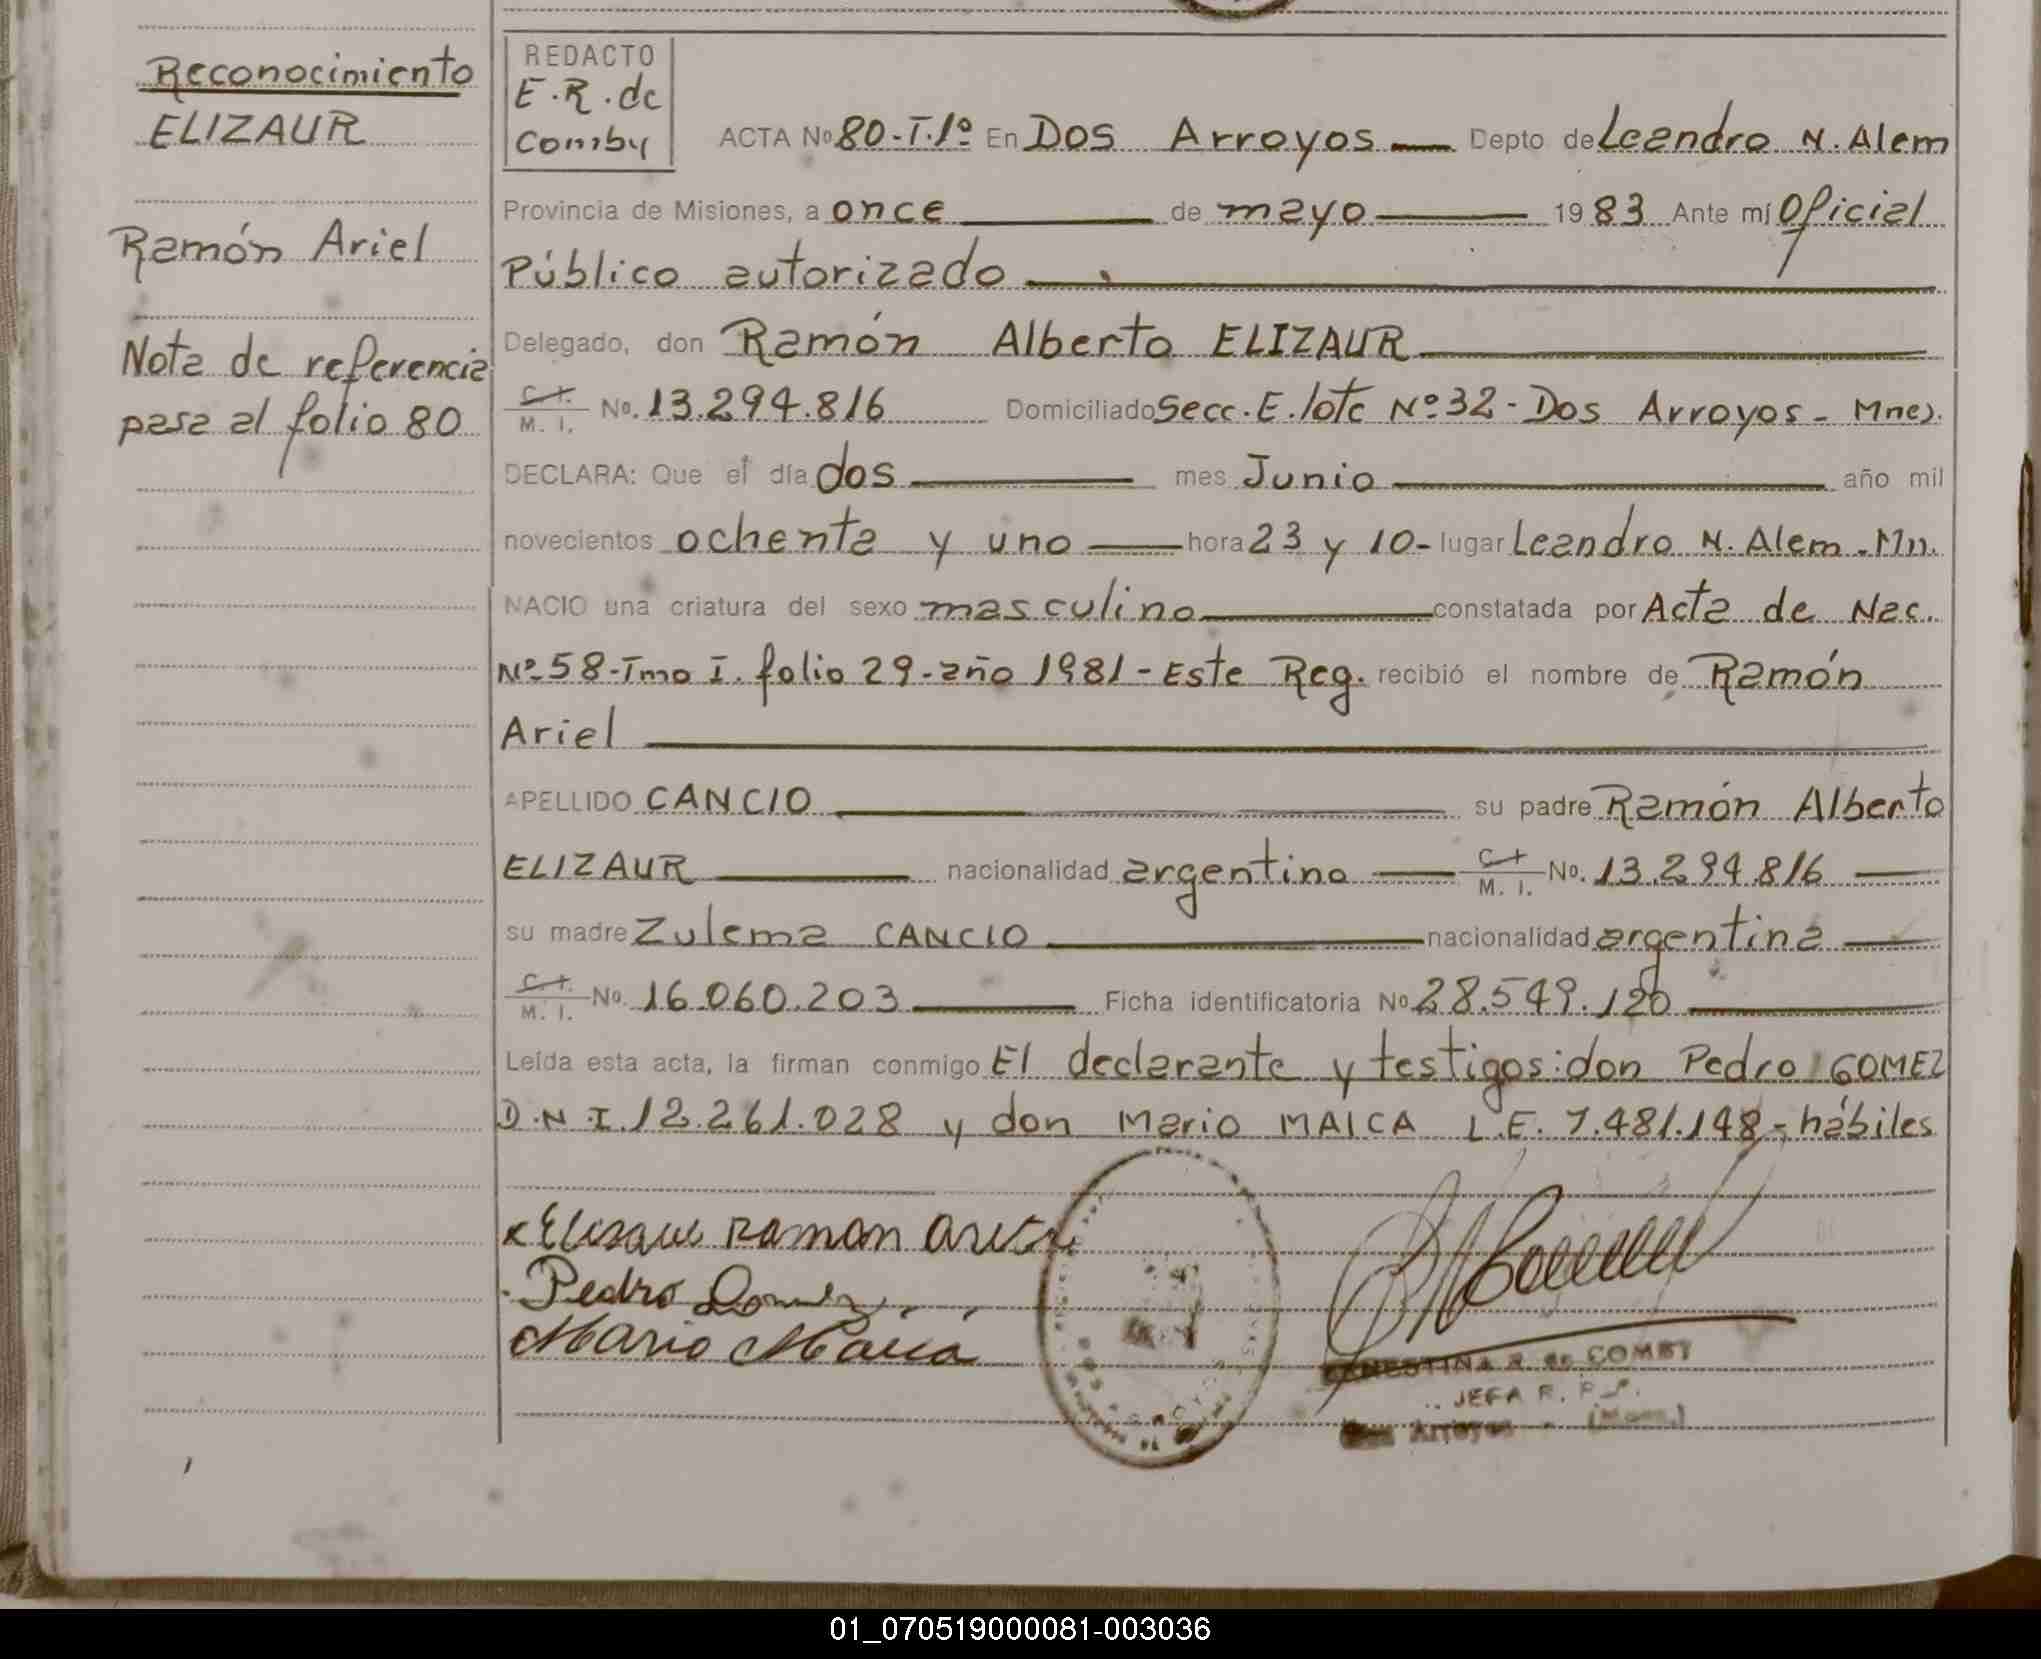 Reconocimiento
ELIZAUR
Ramón Ariel
Nota de referencia
pasa al folio 80
REDACTO
E.R.de
Comby
ACTA No 80-T.1º En Dos Arroyos Depto de Leandro N. Alem
Provincia de Misiones, a once de mayo 1983 Ante mí Oficial
Público autorizado
Delegado, don Ramón Alberto ELIZAUR
C.I. M. I. No. 13.294.816 Domiciliado Secc. E. lote Nº 32 - Dos Arroyos - Mnes.
DECLARA: Que el día dos mes Junio año mil
novecientos ochenta y uno hora 23 y 10- lugar Leandro N. Alem - Mn.
NACIO una criatura del sexo masculino constatada por Acta de Nac.
Nº 58-Tmo I. folio 29-año 1981- Este Reg. recibió el nombre de Ramón
Ariel
APELLIDO CANCIO su padre Ramón Alberto
ELIZAUR nacionalidad argentino C.I. M. I. No. 13.294.816
su madre Zulema CANCIO nacionalidad argentina
C.I. M. I. No. 16.060.203 Ficha identificatoria No 28.549.120
Leída esta acta, la firman conmigo El declarante y testigos: don Pedro GOMEZ
D.N.I. 12.261.028 y don Mario MAICA L.E. 7.481.148- hábiles
Ramon
Pedro Gomez
Mario Maica
ERNESTINA R. de COMBY
JEFA R. P.
Dos Arroyos - (Mnes.)
01_070519000081-003036